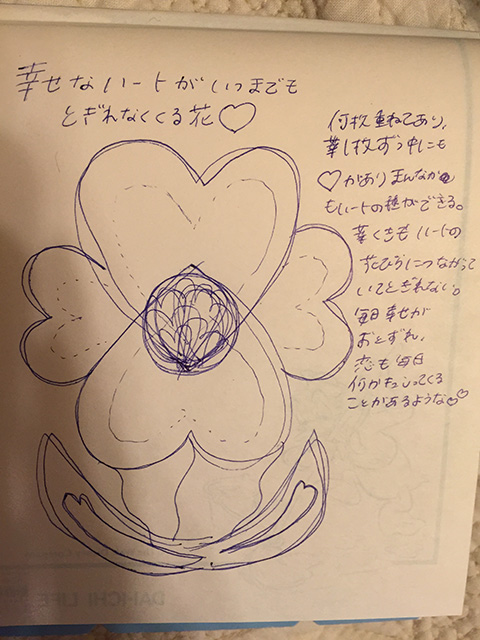 幸せなハートがいつまでも
とぎれなくくる花♡
何枚重ねてあり、
葉し枚ずつ中にも
♡がありまんなか
もハートの種ができる。
葉くきもハートの
花びらにつながって
いてとぎれない。
毎日幸せが
おとずれ、
恋も毎日
何かキュンってくる
ことがあるような♡♡
DAI-ICHI LIFE